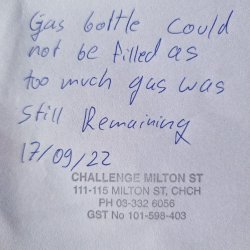 Gas bottle could
not be filled as
too much gas was
still Remaining
17/09/22
CHALLENGE MILTON ST
111-115 MILTON ST, CHCH
PH 03-332 6056
GST No 101-598-403